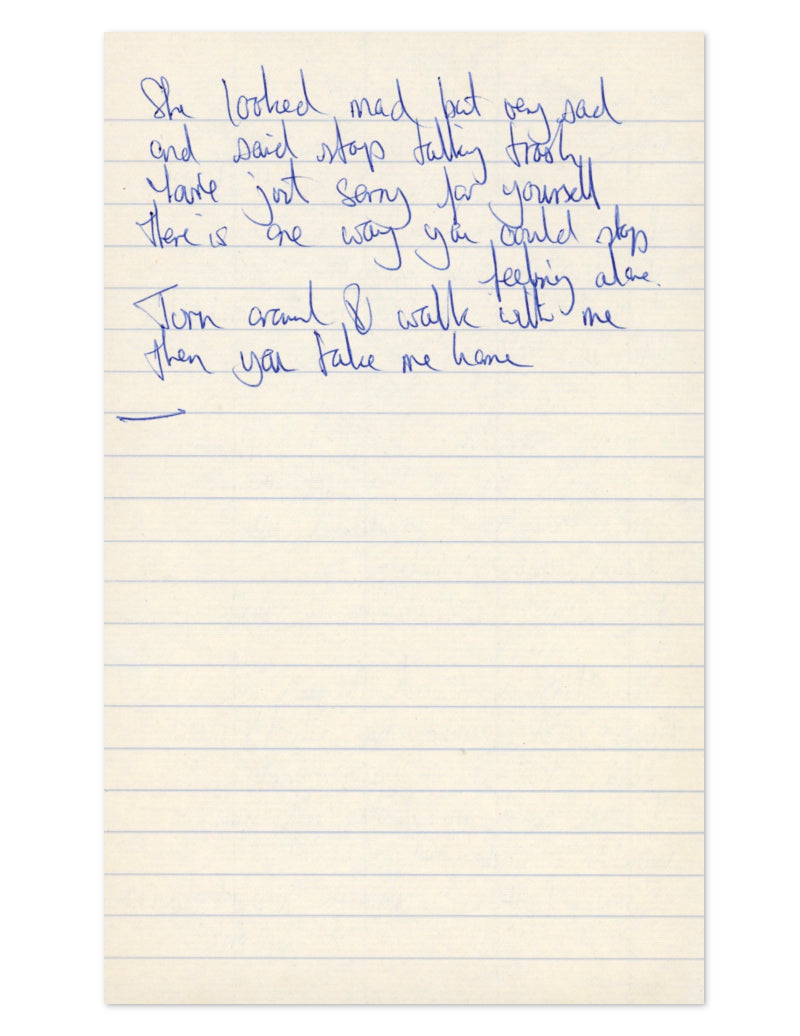 She looked mad but very sad
and said stop talking trash
You're just sorry for yourself
there is one way you could stop
feeling alone.
Turn around & walk with me
then you take me home